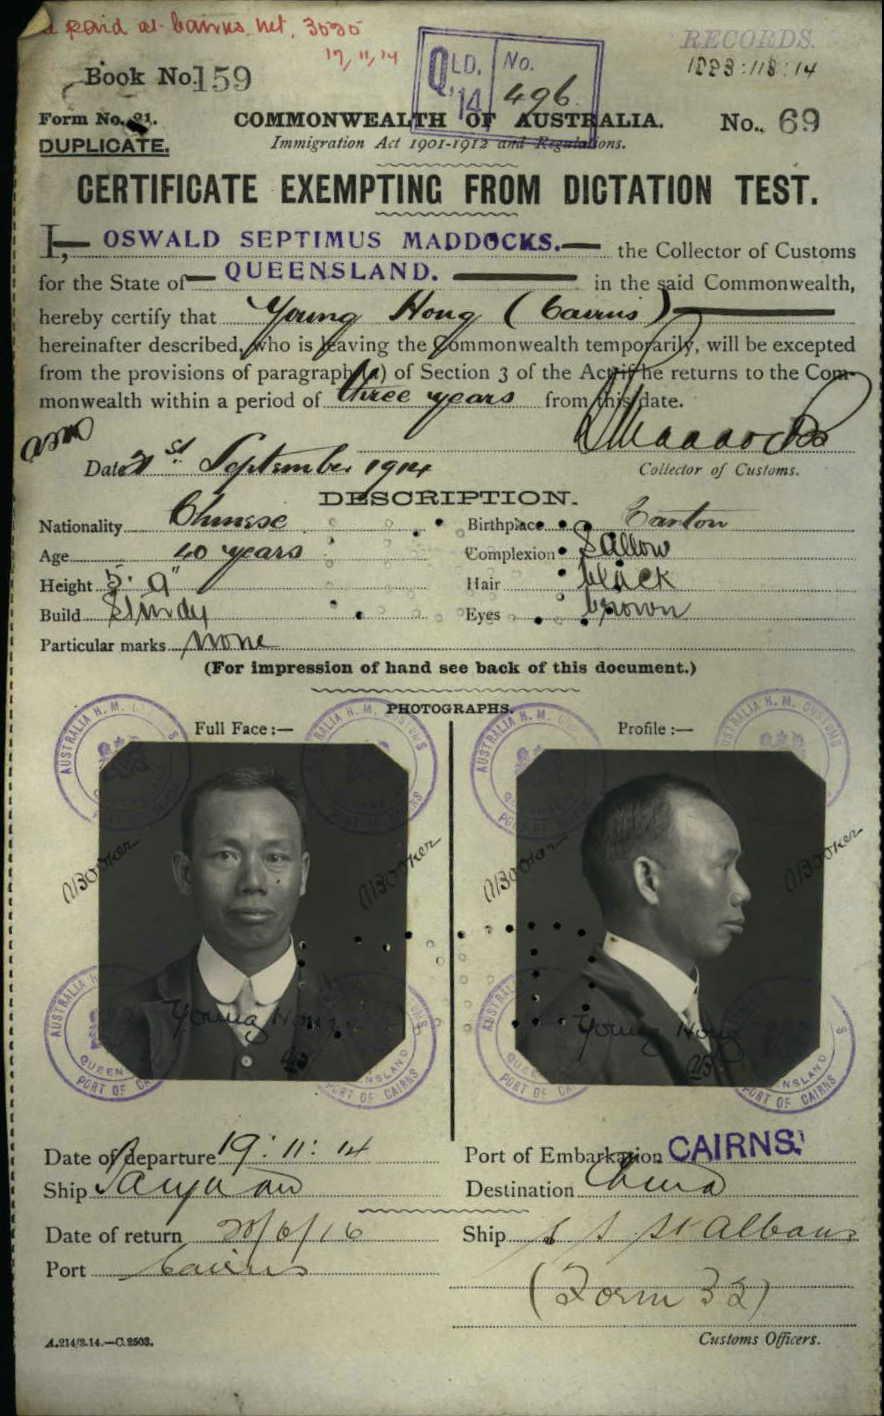 paid at Cairns
17/11/14
RECORDS.
Book No. 159
QLD. No.
'14 496.
Form No. 21.
COMMONWEALTH OF AUSTRALIA.
No. 69
DUPLICATE.
Immigration Act 1901-1912 and Regulations.
CERTIFICATE EXEMPTING FROM DICTATION TEST.
I, OSWALD SEPTIMUS MADDOCKS. the Collector of Customs
for the State of QUEENSLAND. in the said Commonwealth,
hereby certify that Young Hong (Cairns)
hereinafter described, who is leaving the Commonwealth temporarily, will be excepted
from the provisions of paragraph (a) of Section 3 of the Act if he returns to the Com-
monwealth within a period of three years from this date.
Maddocks
Date 21st September 1914
Collector of Customs.
DESCRIPTION.
Nationality Chinese Birthplace Canton
Age 40 years Complexion Sallow
Height 5' 9" Hair black
Build Sturdy Eyes brown
Particular marks none
(For impression of hand see back of this document.)
PHOTOGRAPHS.
Full Face:— Profile:—
AUSTRALIA H. M. CUSTOMS
QUEENSLAND
PORT OF CAIRNS
Young Hong Young Hong
Date of departure 19:11:14 Port of Embarkation CAIRNS.
Ship Taiyuan Destination China
Date of return 20/6/16 Ship S S St Albans
Port Cairns
(Form 32)
A.214/3.14.—C.2503. Customs Officers.